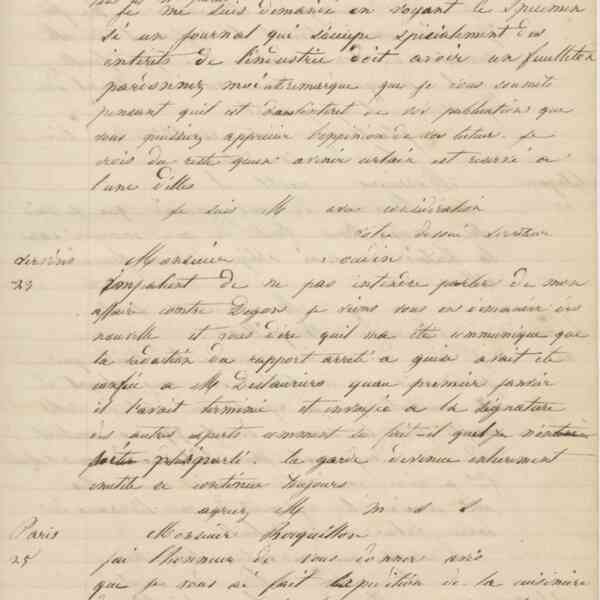 je me suis demandé en voyant le specimen
si un journal qui s'ocupe spésialement des
interets de l'industrie doit avoir un feuilleton
pardonnez moi cetremarque que je vous soumets
pensant quil est dans l'interet de vos publication que
vous puissiez apprecier l'oppinion de vos lecteur. je
crois du reste quun avenir certain est reservé a
l'une d'elles
je suis M avec considération
votre devoué serviteur
Monsieur
23 impatient de ne pas intendre parler de mon
affaire contre je viens vous en demander des
nouvelle et vous dire quil ma été communiqué que
la rédaction du rapport arreté a avait été
confié a M Deslauriers quau premier janvier
il l'avait terminé et envoyée a la signature
des autres experts comment se fait-il que je
parlé. la garde devenue entierement
inutile se continue toujours
agreez M m s s
Paris Monsieur Bouquillon
25 j'ai l'honneur de vous donner avis
que je vous ai fait expédition de la cuisinière